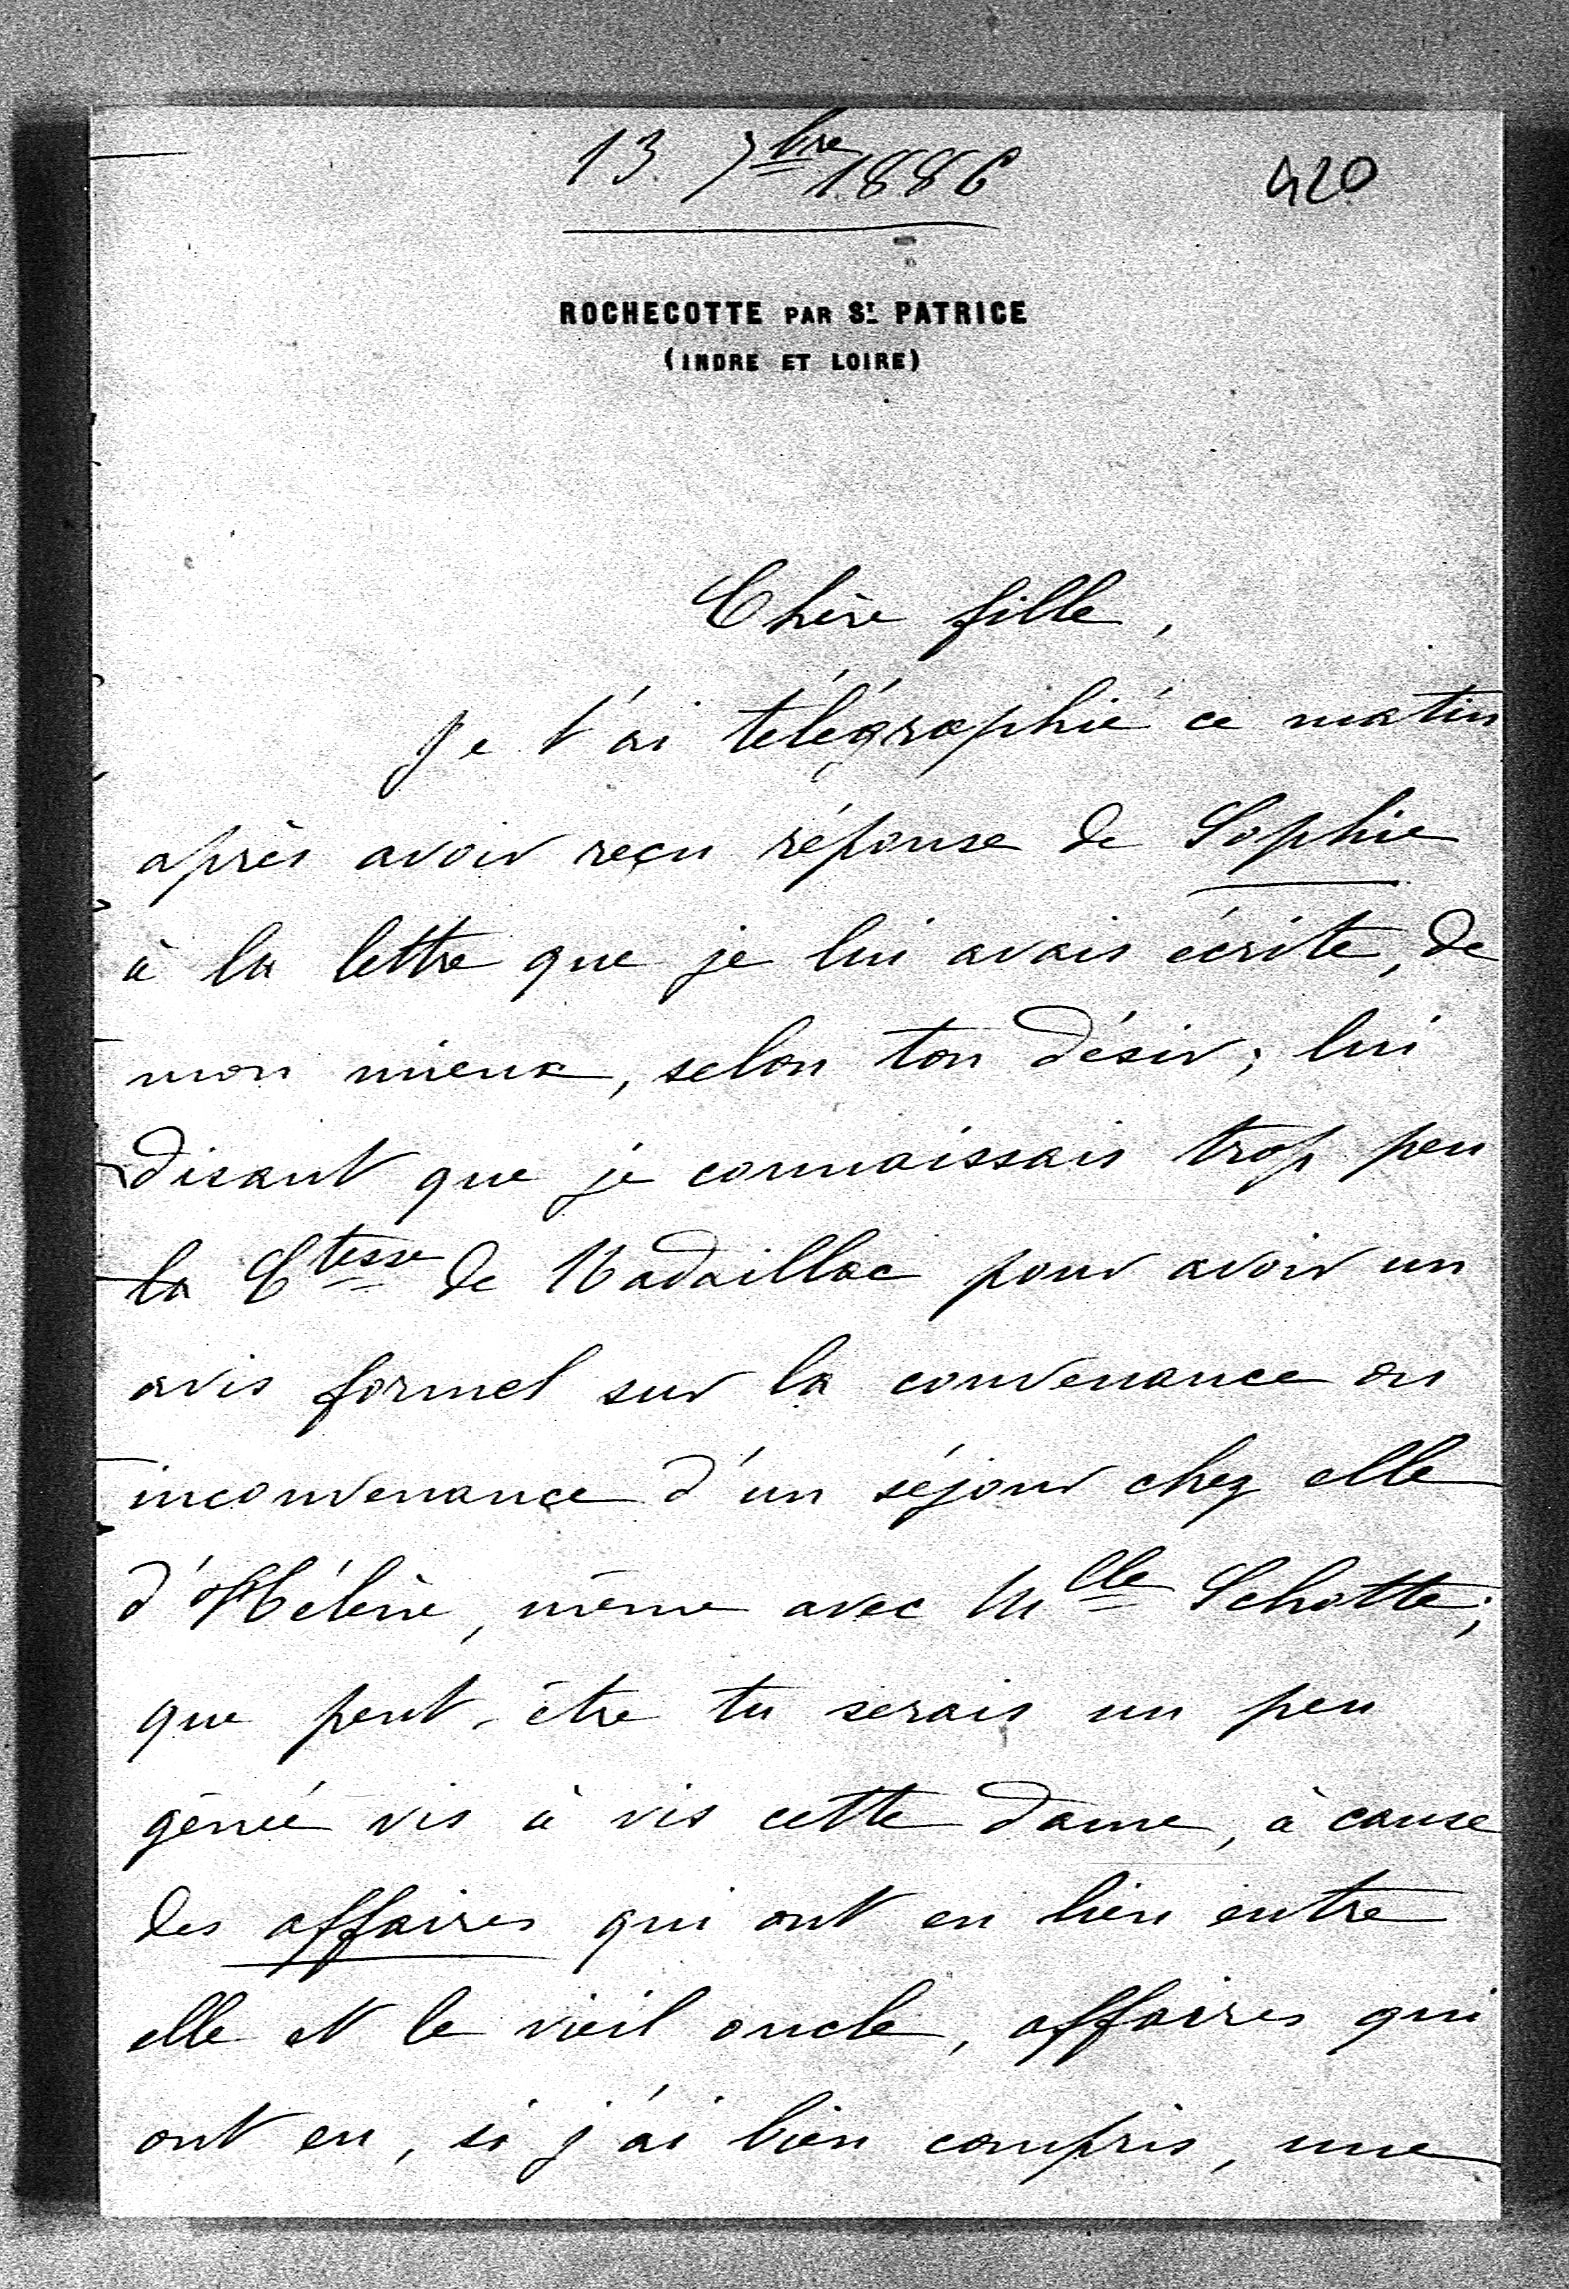 13. 7bre 1886
420
ROCHECOTTE PAR ST PATRICE
(INDRE ET LOIRE)
Chère fille,
Je t'ai télégraphié ce matin
après avoir reçu réponse de Sophie
à la lettre que je lui avais écrite, de
mon mieux, selon ton désir; lui
disant que je connaissais trop peu
la Ctesse de Nadaillac pour avoir un
avis formel sur la convenance ou
inconvenance d'un séjour chez elle
d'Hélène, même avec Mlle Schotte;
que peut-être tu serais un peu
gênée vis à vis cette dame, à cause
des affaires qui ont eu lieu entre
elle et le vieil oncle, affaires qui
ont eu, si j'ai bien compris, une